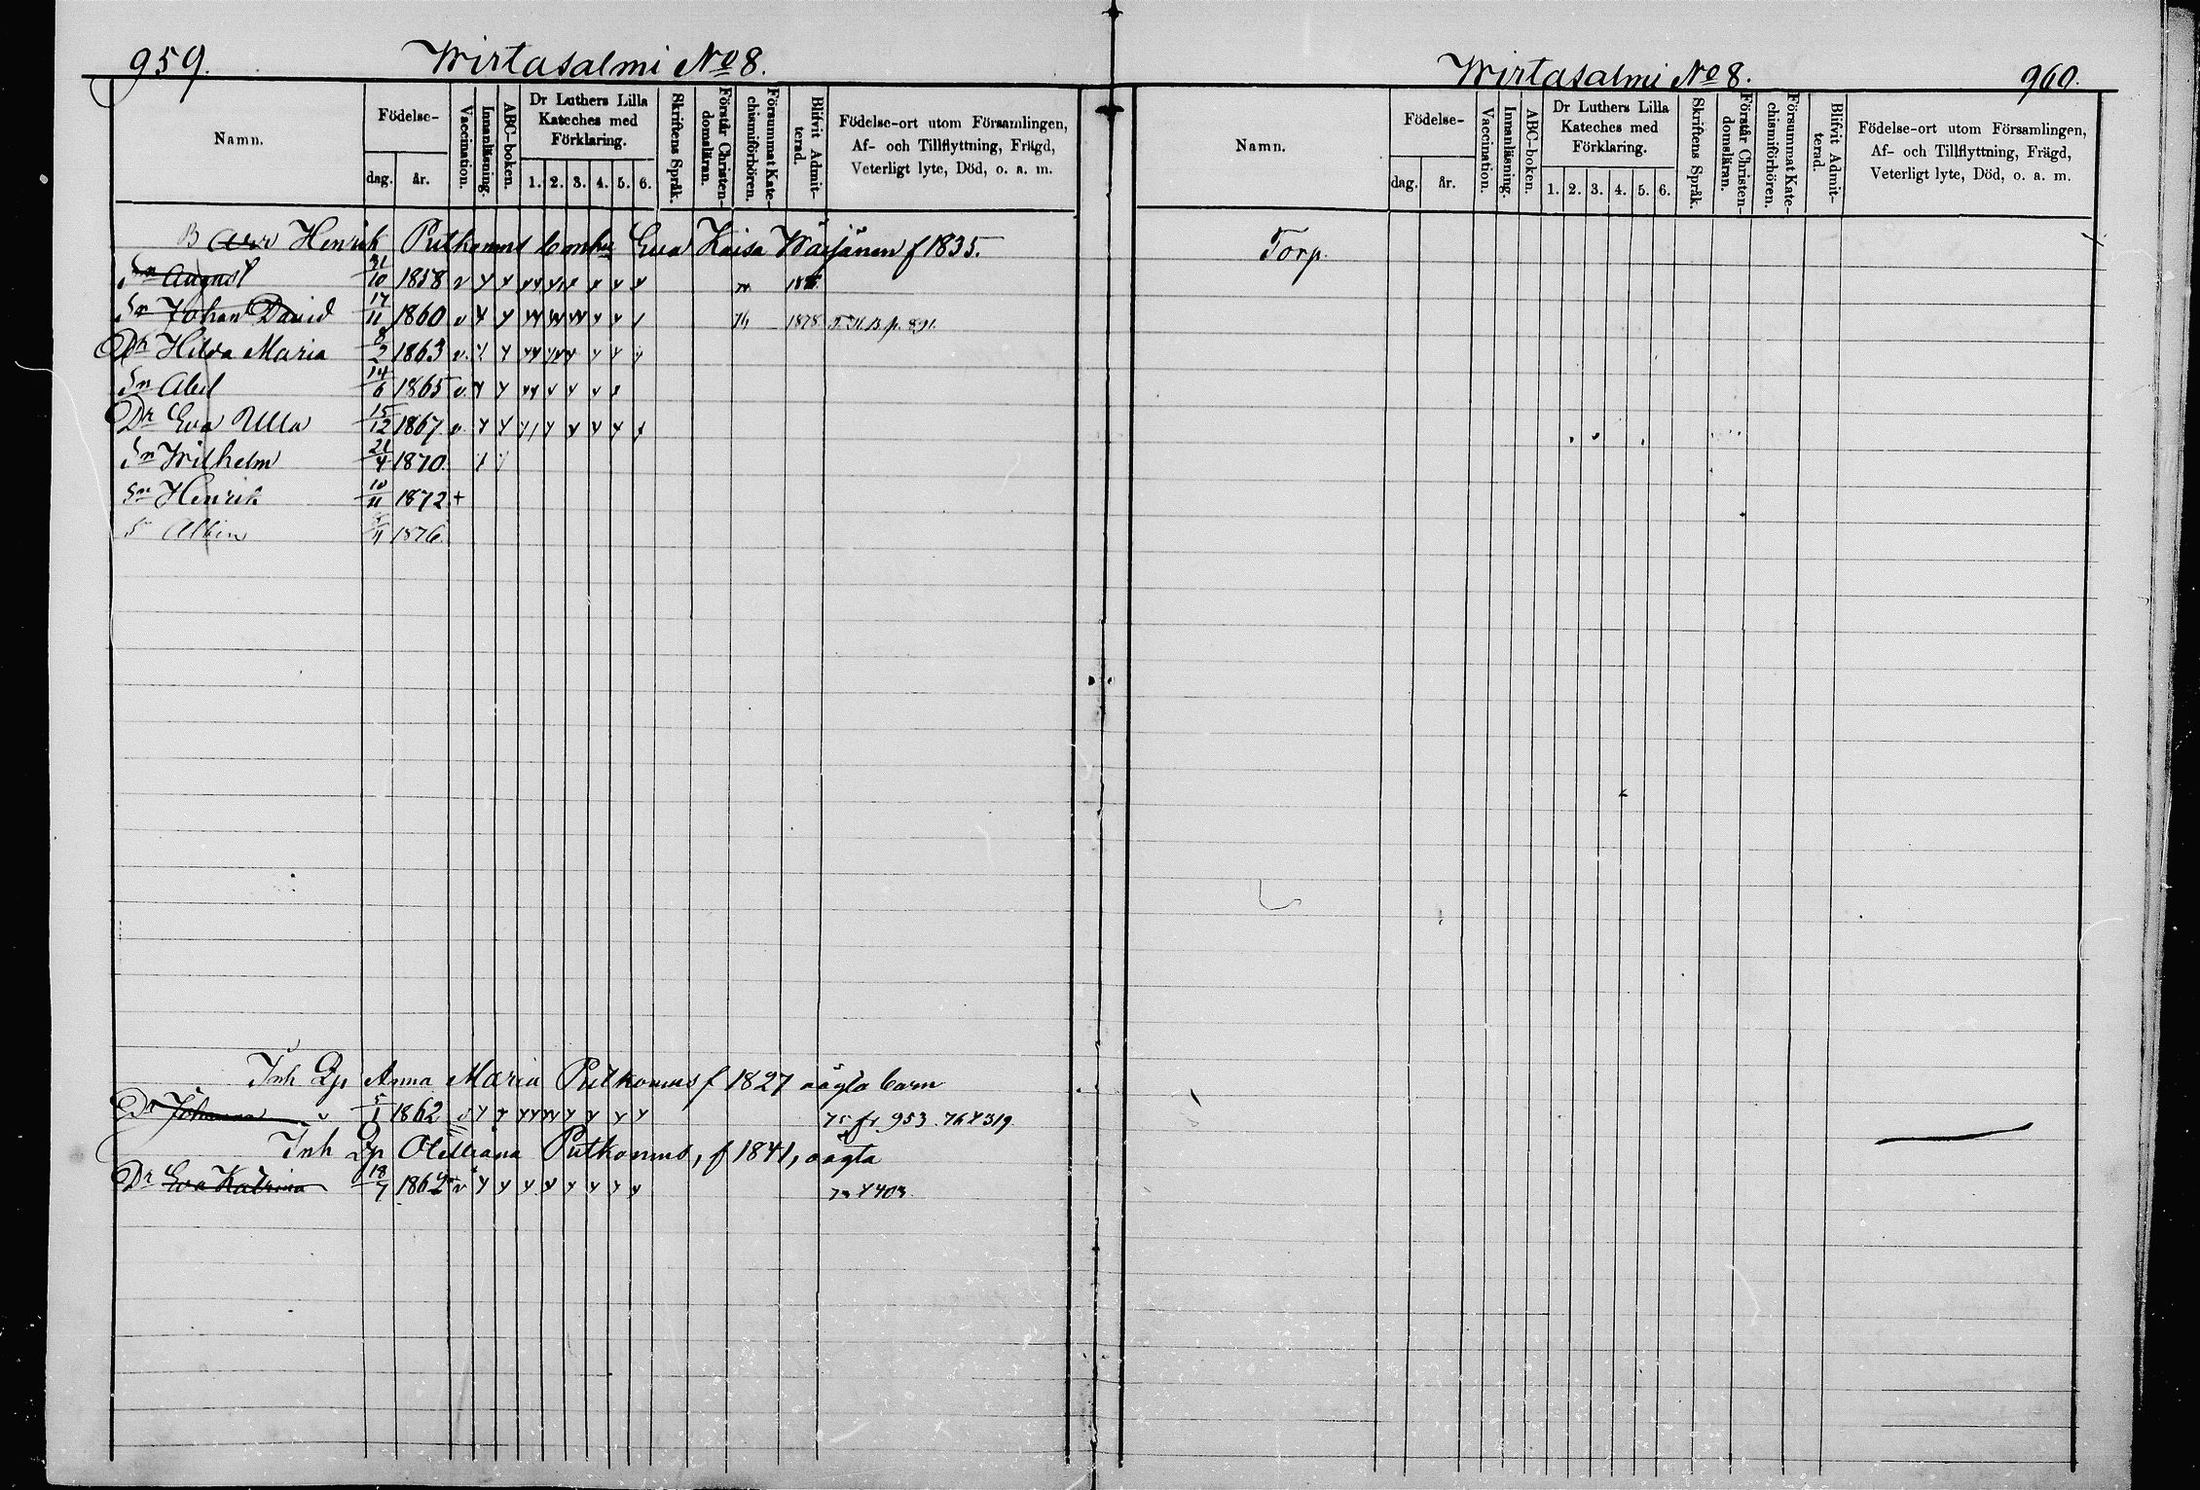 959.
Wirtasalmi No 8.
Namn.
Födelse-
dag. år.
Vaccination.
Innanläsning.
ABC-boken.
Dr Luthers Lilla
Kateches med
Förklaring.
1. 2. 3. 4. 5. 6.
Skriftens Språk.
Förstår Christen-
domsläran.
Försummat Kate-
chismiförhören.
Blifvit Admit-
terad.
Födelse-ort utom Församlingen,
Af- och Tillflyttning, Frägd,
Veterligt lyte, Död, o. a. m.
B Henrik Putkonens Eva Kaisa f 1835.
Sn August 31/10 1858
Sn Johan David 17/11 1860 76 1878
Dr Hilda Maria 1863
Sn Abel 14/6 1865
Dr Eva Ulla 15/12 1867
Sn Wilhelm 21/4 1870
Sn Henrik 10/11 1872 +
Sn Albin 1876
Inh Qp Anna Maria Putkonens f 1827 oägta barn
Dr Johanna 5/1 1862 75 fr 953. 76 319
Inh Qp Putkonens, f 1841, oägta
Dr Eva Katrina 18/7 1862
Wirtasalmi No 8.
960.
Namn.
Födelse-
dag. år.
Vaccination.
Innanläsning.
ABC-boken.
Dr Luthers Lilla
Kateches med
Förklaring.
1. 2. 3. 4. 5. 6.
Skriftens Språk.
Förstår Christen-
domsläran.
Försummat Kate-
chismiförhören.
Blifvit Admit-
terad.
Födelse-ort utom Församlingen,
Af- och Tillflyttning, Frägd,
Veterligt lyte, Död, o. a. m.
Torp.